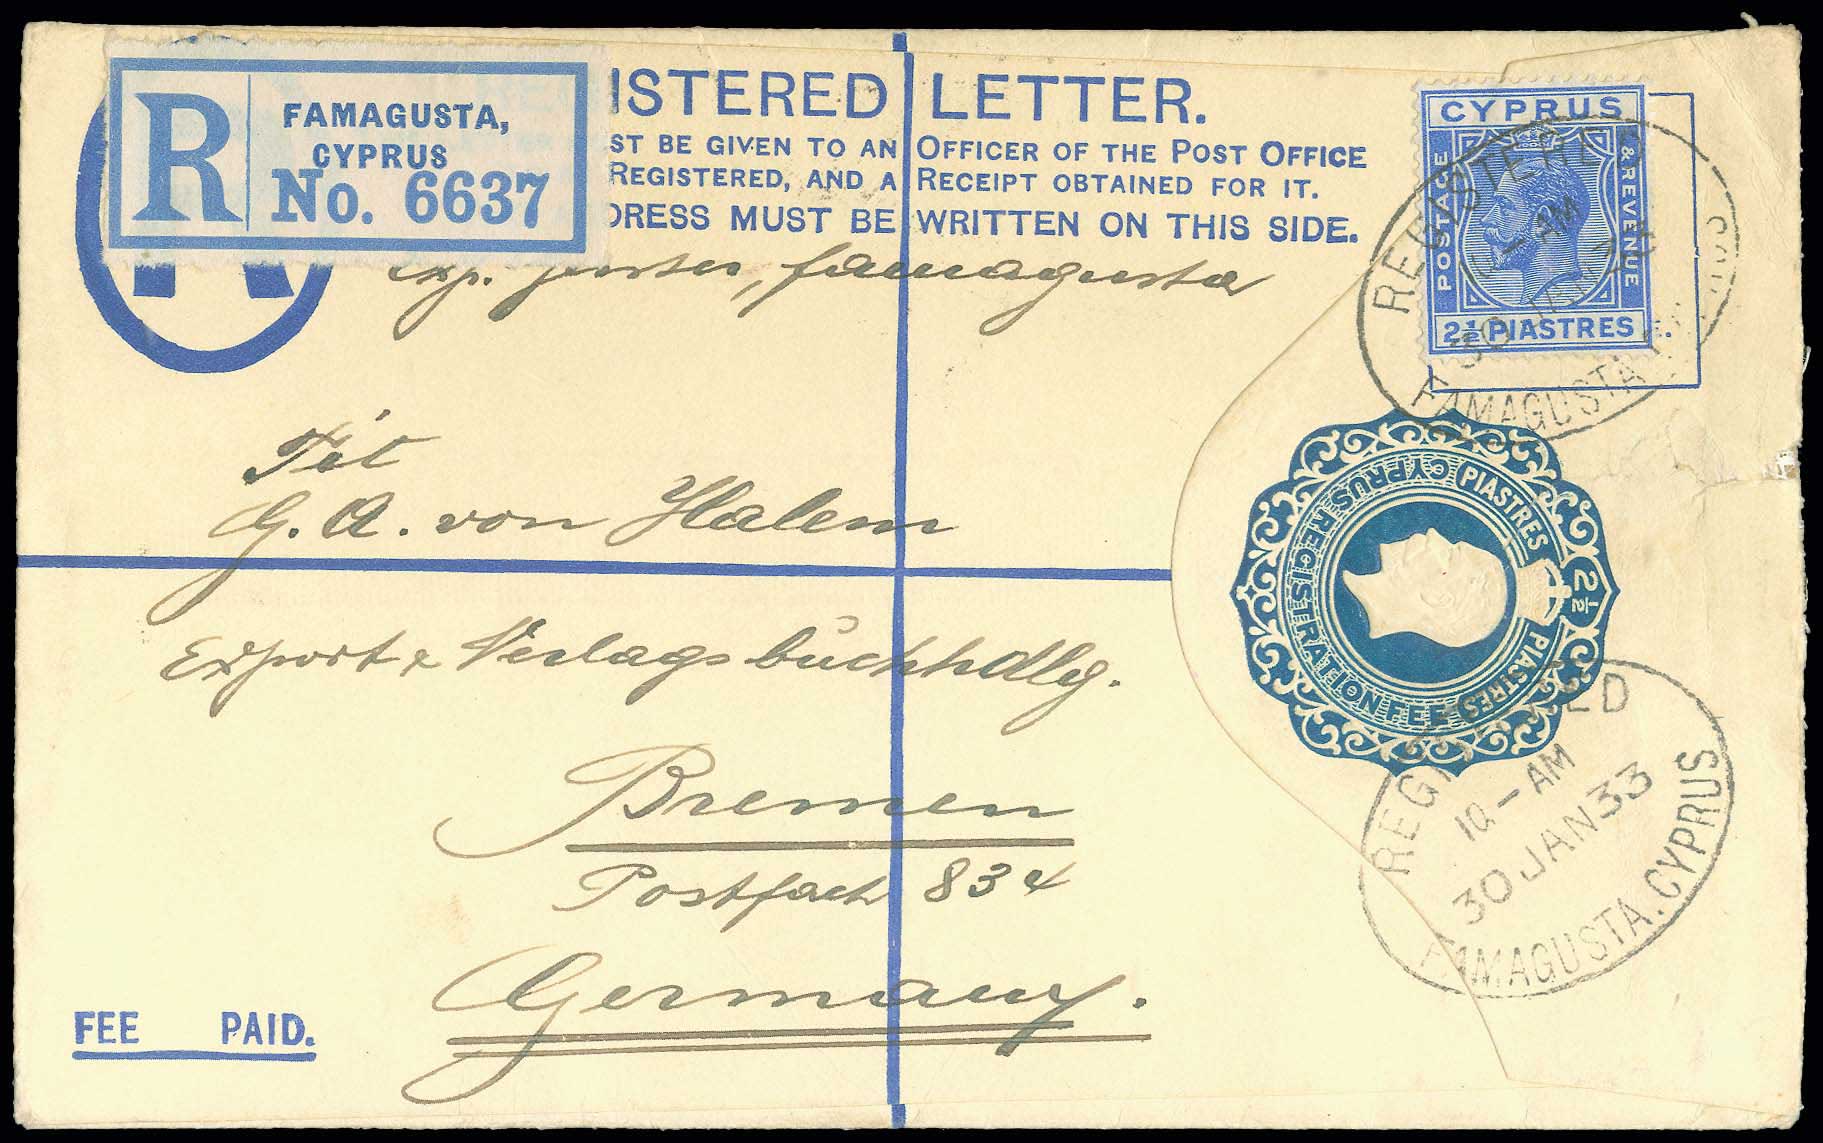 R
FAMAGUSTA,
CYPRUS
No. 6637
ISTERED LETTER.
ST BE GIVEN TO AN OFFICER OF THE POST OFFICE
REGISTERED, AND A RECEIPT OBTAINED FOR IT.
DRESS MUST BE WRITTEN ON THIS SIDE.
CYPRUS
POSTAGE
& REVENUE
2½ PIASTRES
REGISTERED
AM
30 JAN
FAMAGUSTA. CYPRUS
Exp. famagusta
Tit
G. A. von Halem
Export & Verlagsbuchhdlg.
Bremen
Postfach 834
Germany.
CYPRUS REGISTRATION FEE
PIASTRES 2½ PIASTRES
REGISTERED
10-AM
30 JAN 33
FAMAGUSTA. CYPRUS
FEE PAID.